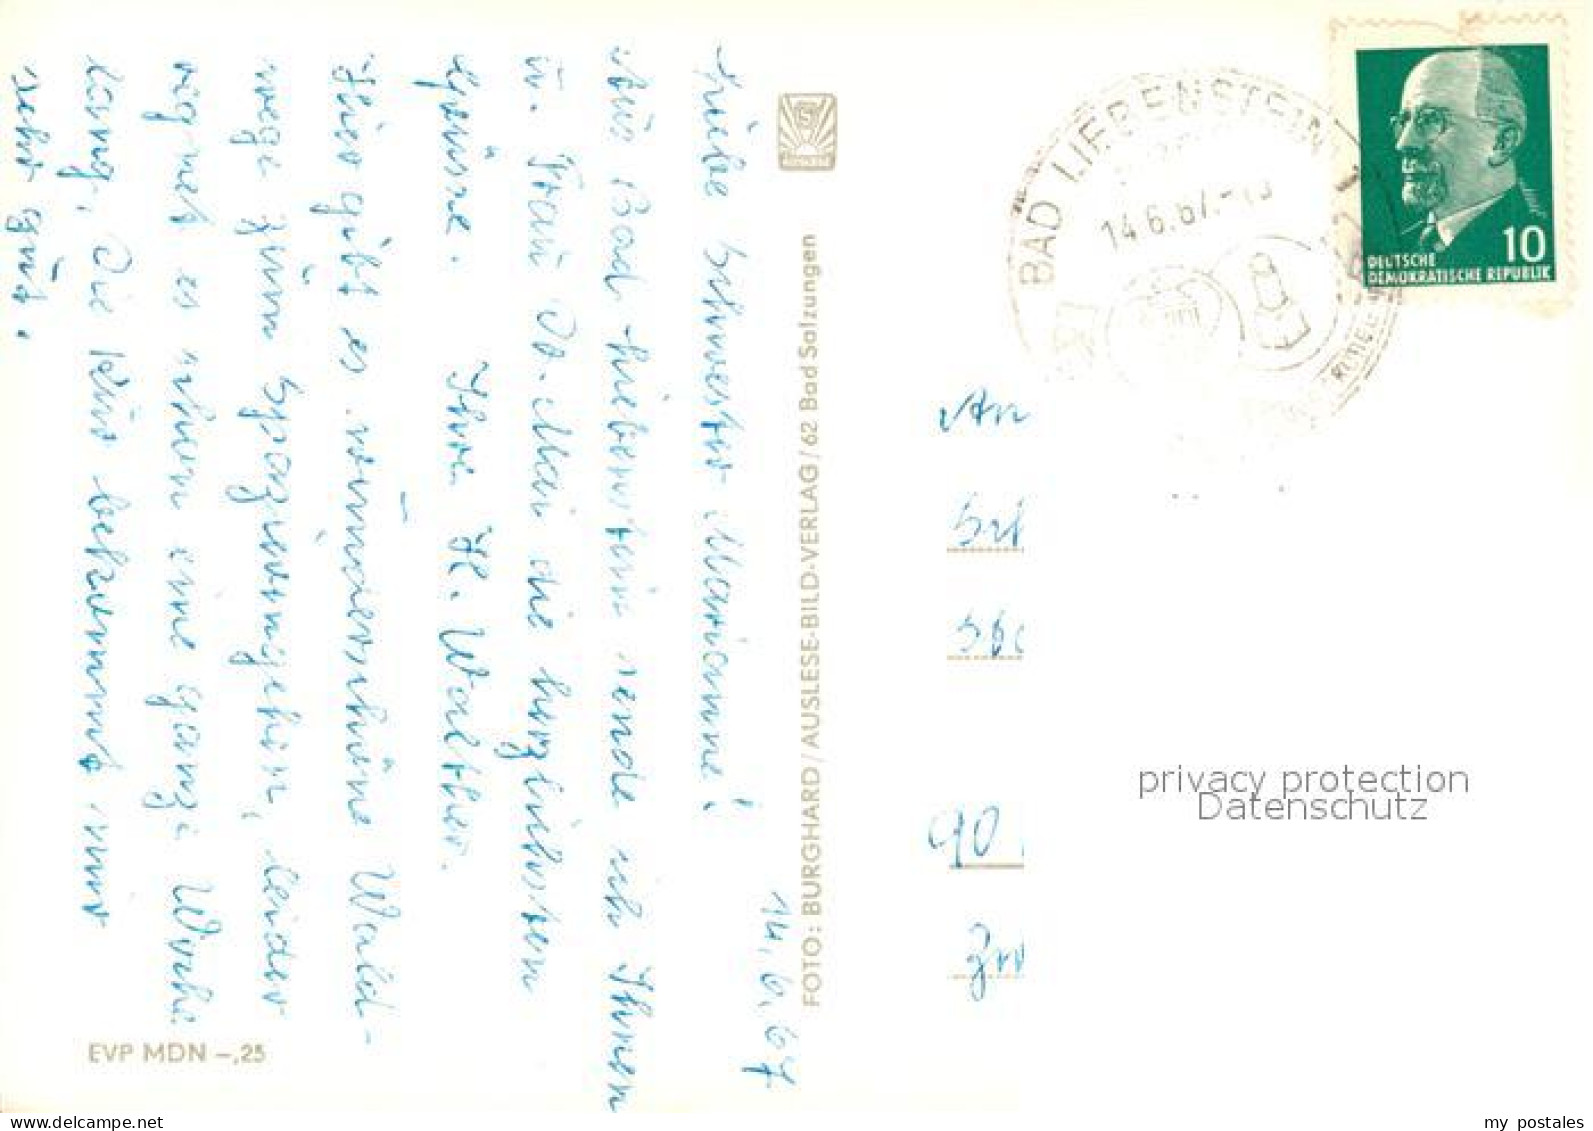 14.6.67
Liebe Schwester Marianne!
Aus Bad Liebenstein sende ich Ihnen
u. Frau Dr. Mai die herzlichsten
Grüsse. Ihre H. Walther.
Hier gibt es wunderschöne Wald-
wege zum Spazierengehen, leider
regnet es schon eine ganze Woche
lang. Die Kur bekommt mir
sehr gut.
EVP MDN –,25
FOTO: BURGHARD/AUSLESE-BILD-VERLAG/62 Bad Salzungen
BAD LIEBENSTEIN
14.6.67.-
10
DEUTSCHE
DEMOKRATISCHE REPUBLIK
An
Sch
90
Zw
privacy protection
Datenschutz
my postales